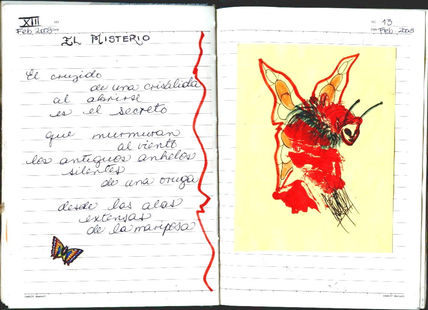 XIII
Feb, 2005
EL MISTERIO
El crujido
de una crisálida
al abrirse
es el secreto
que murmuran
al viento
los antiguos anhelos
silentes
de una oruga
desde las alas
extensas
de la mariposa
13
Feb, 2005